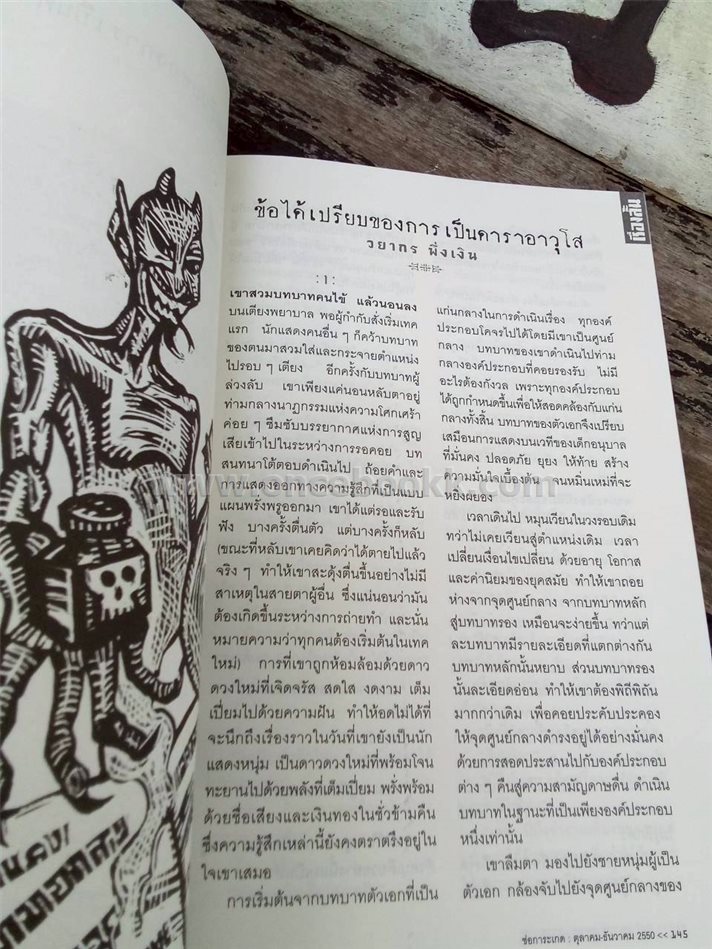 เรื่องสั้น
ข้อได้เปรียบของการเป็นดาราอาวุโส
วยากร พึ่งเงิน
:1:
เขาสวมบทบาทคนไข้ แล้วนอนลง
บนเตียงพยาบาล พอผู้กำกับสั่งเริ่มเทค
แรก นักแสดงคนอื่น ๆ ก็คว้าบทบาท
ของตนมาสวมใส่และกระจายตำแหน่ง
ไปรอบ ๆ เตียง อีกครั้งกับบทบาทผู้
ล่วงลับ เขาเพียงแค่นอนหลับตาอยู่
ท่ามกลางนาฏกรรมแห่งความโศกเศร้า
ค่อย ๆ ซึมซับบรรยากาศแห่งการสูญ
เสียเข้าไปในระหว่างการรอคอย บท
สนทนาโต้ตอบดำเนินไป ถ้อยคำและ
การแสดงออกทางความรู้สึกที่เป็นแบบ
แผนพรั่งพรูออกมา เขาได้แต่รอและรับ
ฟัง บางครั้งตื่นตัว แต่บางครั้งก็หลับ
(ขณะที่หลับเขาเคยคิดว่าได้ตายไปแล้ว
จริง ๆ ทำให้เขาสะดุ้งตื่นขึ้นอย่างไม่มี
สาเหตุในสายตาผู้อื่น ซึ่งแน่นอนว่ามัน
ต้องเกิดขึ้นระหว่างการถ่ายทำ และนั่น
หมายความว่าทุกคนต้องเริ่มต้นในเทค
ใหม่) การที่เขาถูกห้อมล้อมด้วยดาว
ดวงใหม่ที่เจิดจรัส สดใส งดงาม เต็ม
เปี่ยมไปด้วยความฝัน ทำให้อดไม่ได้ที่
จะนึกถึงเรื่องราวในวันที่เขายังเป็นนัก
แสดงหนุ่ม เป็นดาวดวงใหม่ที่พร้อมโจน
ทะยานไปด้วยพลังที่เต็มเปี่ยม พรั่งพร้อม
ด้วยชื่อเสียงและเงินทองในชั่วข้ามคืน
ซึ่งความรู้สึกเหล่านี้ยังคงตราตรึงอยู่ใน
ใจเขาเสมอ
การเริ่มต้นจากบทบาทตัวเอกที่เป็น
แก่นกลางในการดำเนินเรื่อง ทุกองค์
ประกอบโคจรไปได้โดยมีเขาเป็นศูนย์
กลาง บทบาทของเขาดำเนินไปท่าม
กลางองค์ประกอบที่คอยรองรับ ไม่มี
อะไรต้องกังวล เพราะทุกองค์ประกอบ
ได้ถูกกำหนดขึ้นเพื่อให้สอดคล้องกับแก่น
กลางทั้งสิ้น บทบาทของตัวเอกจึงเปรียบ
เสมือนการแสดงบนเวทีของเด็กอนุบาล
ที่มั่นคง ปลอดภัย ยุยง ให้ท้าย สร้าง
ความมั่นใจเบื้องต้น จนหมิ่นเหม่ที่จะ
หยิ่งผยอง
เวลาเดินไป หมุนเวียนในวงรอบเดิม
ทว่าไม่เคยเวียนสู่ตำแหน่งเดิม เวลา
เปลี่ยนเงื่อนไขเปลี่ยน ด้วยอายุ โอกาส
และค่านิยมของยุคสมัย ทำให้เขาถอย
ห่างจากจุดศูนย์กลาง จากบทบาทหลัก
สู่บทบาทรอง เหมือนจะง่ายขึ้น ทว่าแต่
ละบทบาทมีรายละเอียดที่แตกต่างกัน
บทบาทหลักนั้นหยาบ ส่วนบทบาทรอง
นั้นละเอียดอ่อน ทำให้เขาต้องพิถีพิถัน
มากกว่าเดิม เพื่อคอยประคับประคอง
ให้จุดศูนย์กลางดำรงอยู่ได้อย่างมั่นคง
ด้วยการสอดประสานไปกับองค์ประกอบ
ต่าง ๆ คืนสู่ความสามัญดาษดื่น ดำเนิน
บทบาทในฐานะที่เป็นเพียงองค์ประกอบ
หนึ่งเท่านั้น
เขาลืมตา มองไปยังชายหนุ่มผู้เป็น
ตัวเอก กล้องจับไปยังจุดศูนย์กลางของ
ช่อการะเกด : ตุลาคม-ธันวาคม 2550 << 145